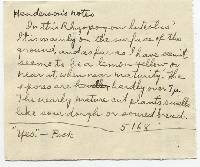 Henderson's notes
In this Rhizopogon luteolus?
It is mainly on the surface of the
ground, and as far as I have seen it
seems to be a lemon yellow or
near it, when near maturity. The
spores are hardly over 7µ.
The nearly mature ones plainly smells
like sour dough or soured bread.
5168
"Yes." — Peck